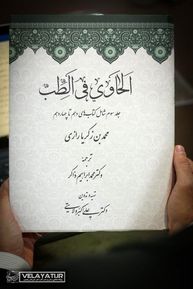 الحاوي في الطب
جلد سوم شامل کتاب‌های دهم تا چهاردهم
محمد بن زکریا رازی
ترجمه
دکتر محمد ابراهیم ذاکر
دکتر علی اکبر ولایتی
VELAYATI.IR